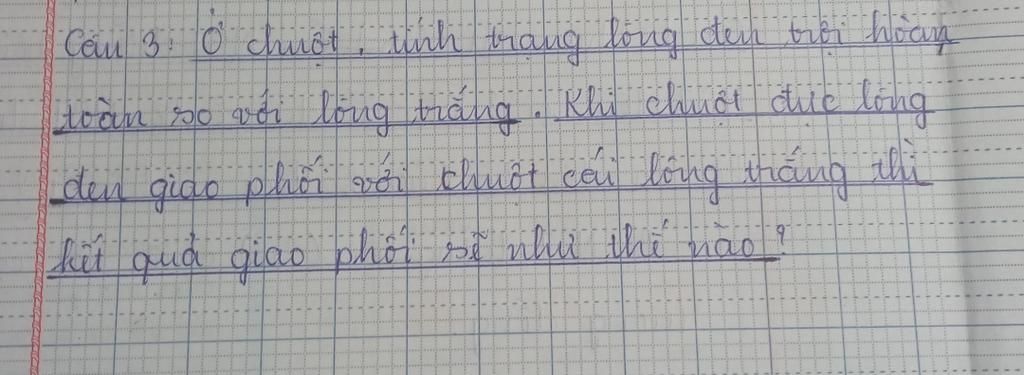 Câu 3: Ở chuột, tính trạng lông đen trội hoàn
toàn so với lông trắng. Khi chuột đực lông
đen giao phối với chuột cái lông trắng thì
kết quả giao phối sẽ như thế nào?